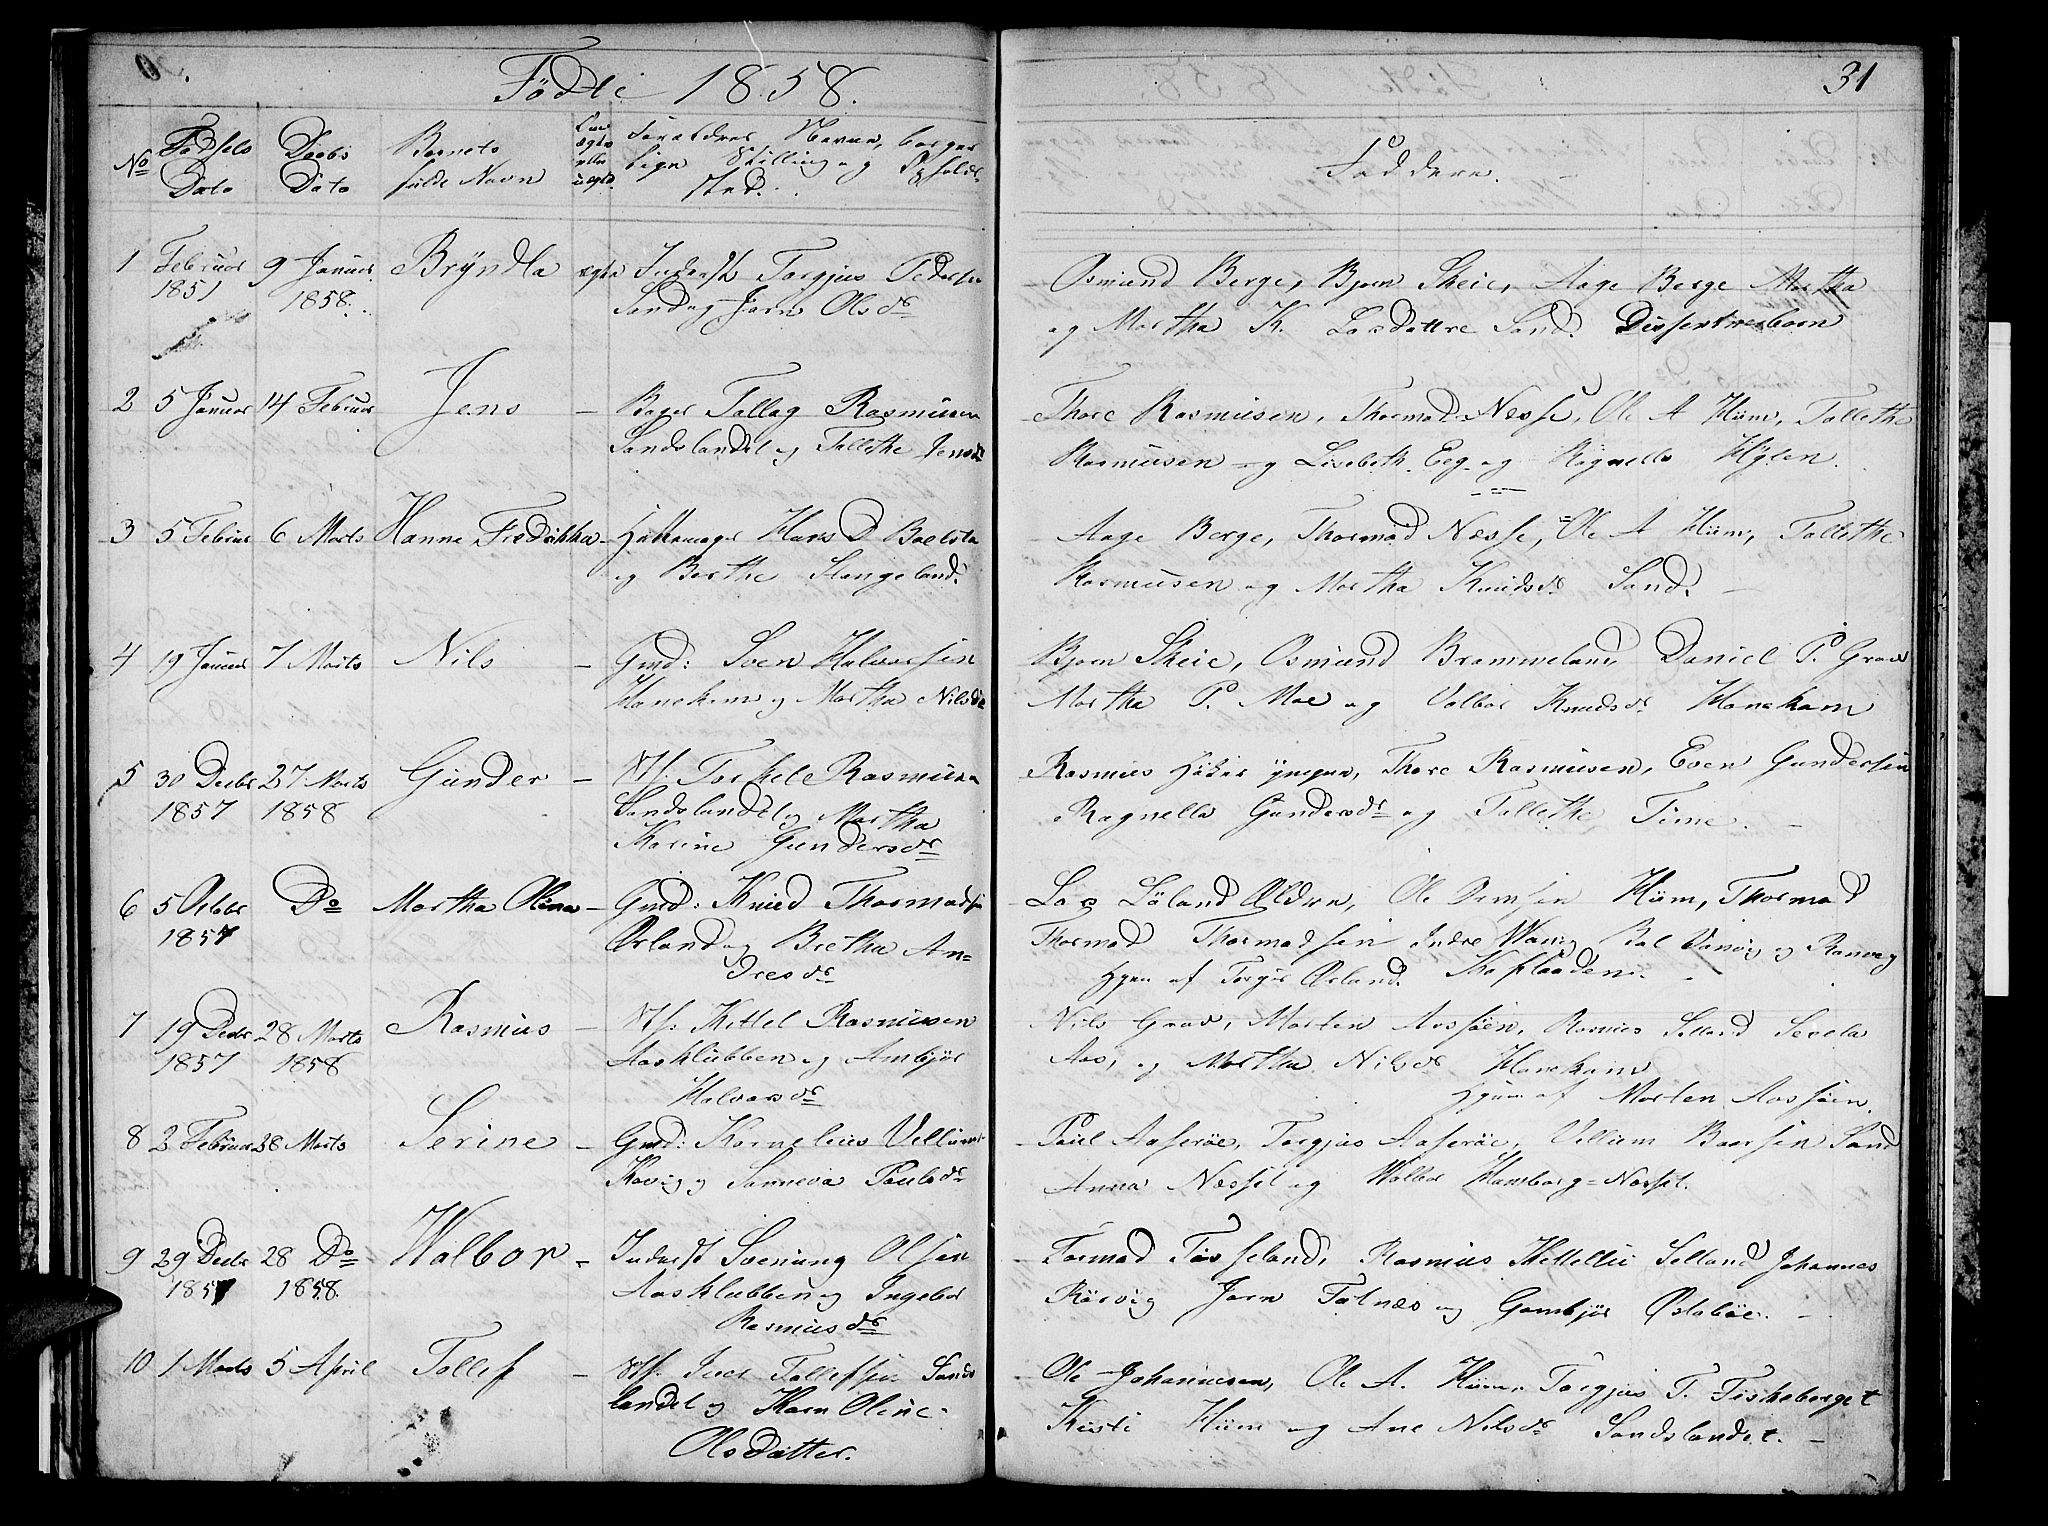 Födte 1858.
31
No Födsels Dato Daabs Dato Barnets fulde Navn Om ægte eller uægte Forældres Navne, borgerlige Stilling og Opholdssted.
Faddere.
1 Februar 1851 9 Januar 1858. Bryndla ægte Inderst Torgjus Pedersen
Sand og Jorn Olsdr
Osmund Berge, Bjorn Skeie, Aage Berge Martha
og Martha K. Larsdattre Sand. Dissenterebarn
2 5 Januar 14 Februar Jens - Bager Tallag Rasmusen
Sandslandet og Tallethe Jensdr
Thore Rasmusen, Thormod Nesse, Ole A Hiim, Tallethe
Rasmusen og Lisebeth Eeg og Ragnella Hylen.
3 5 Februar 6 Marts Hanne Fredrikka - Hattemager Hans D
og Berthe Slangeland.
Aage Berge, Thormod Nesse, Ole A Hiim, Tallethe
Rasmusen og Martha Knudsdr Sand. -
4 19 Januar 7 Marts Nils - Gmd: Sven Halvorsen
Hanekam og Martha Nilsdr
Bjorn Skeie, Osmund Brommeland, Daniel P. Grov
Martha P. Moe og Valbor Knudsdr Hanekam
5 30 Decbr 1857 27 Marts 1858 Gunder - Torkele Rasmusen
Sandslandet og Martha
Karine Gundersdr
Rasmus Thore Rasmusen, Even Gundersen
Ragnella Gundersdr og Tallethe Time. -
6 5 Octobr 1857 Do Martha Olena - Gmd: Knud Thormodsen
Ørland og Bretha An=
dresdr
Lars Löland Ældre, Ole Hiim, Thormod
Thormod Thormodsen Indre og Ranveg
Hjem af Torgir Ørland.
7 19 Decbr 1857 28 Marts 1858 Rasmus - Kittel Rasmusen
Aasklubben og Ambjör
Halvorsdr
Nils Grov, Morten Aassöen, Rasmus Selland
Aas, og Martha Nilsdr Hanekam
Hjem af Morten Aassöen.
8 2 Februar 28 Marts Serine - Gmd: Kornelius
og Sanneva Paulsdr
Paul Aaseröe, Torgjus Aaseröe, Villum Baarsen Sand
Anna Næsset og Walbor Hamborg=Næsset.
9 29 Decbr 1857 28 Do 1858. Walbor - Inderst Svenung Olsen
Aasklubben og Ingebor
Rasmusdr
Tormod Fosseland, Rasmus Selland Johannes
Rörvig Jorn Fatnæs og Gambjör Østeböe. -
10 1 Marts 5 April Tollef - Iver Tollefsen Sands
landet og Karn Oline
Olsdatter.
Ole Johannesen, Ole A. Hiim, Torgjus T. Fiskeberget
Kisti Hiim og Ane Nilsdr Sandslandet. -